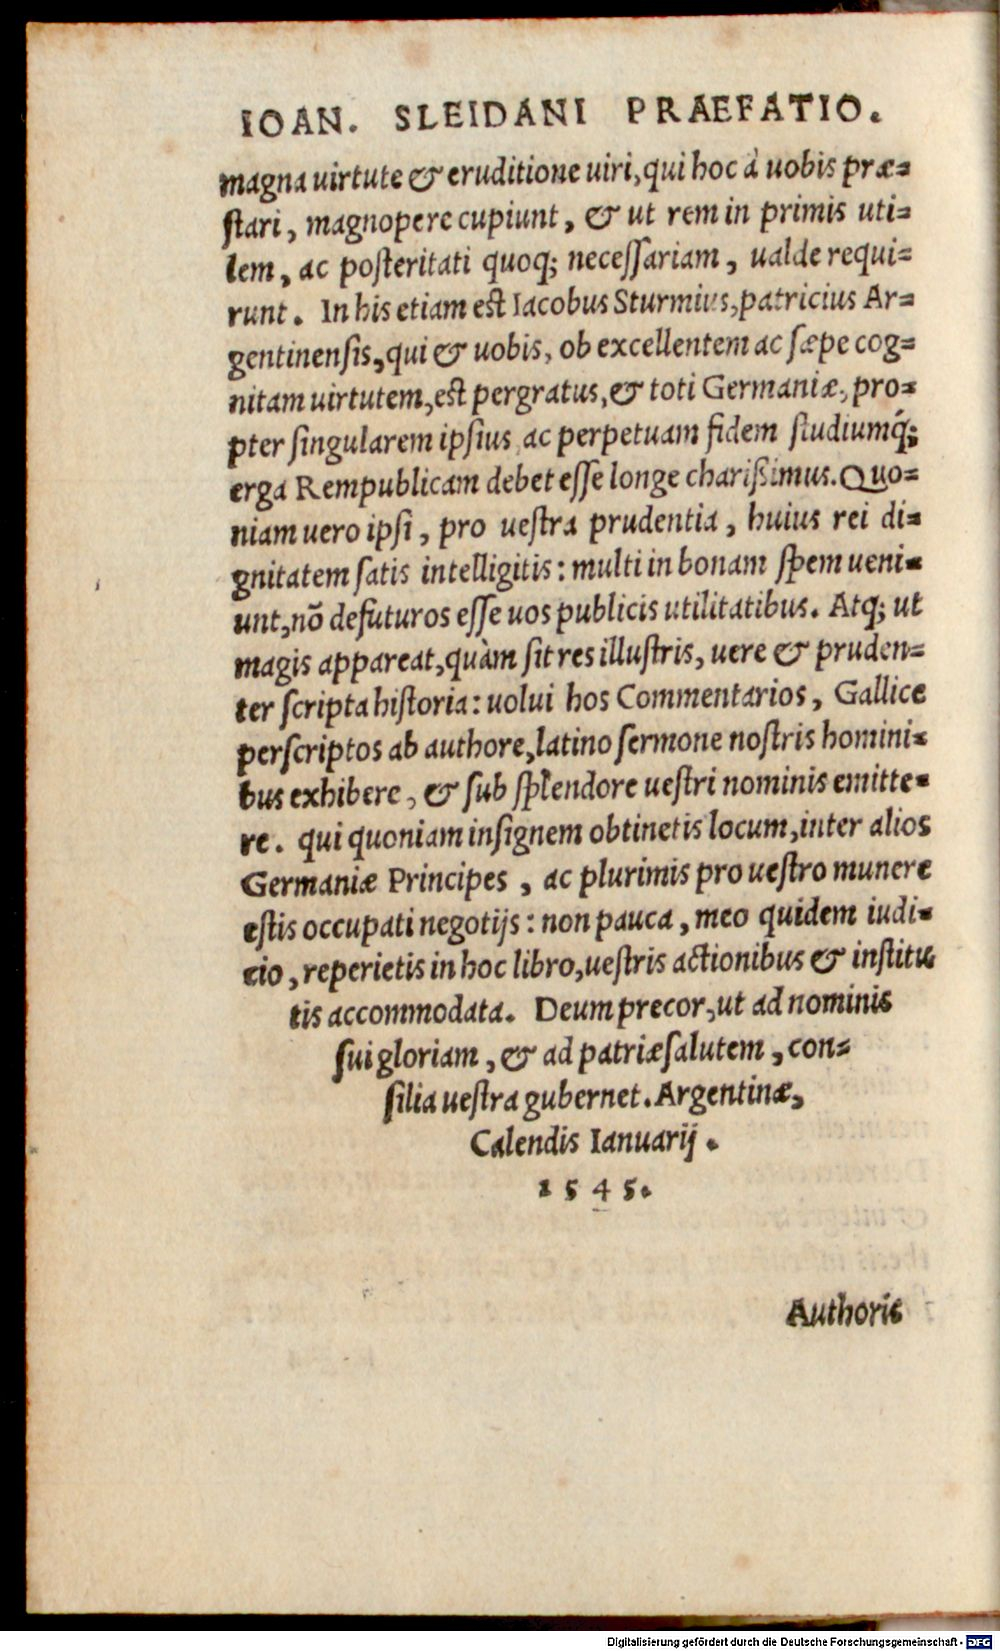 IOAN. SLEIDANI PRAEFATIO.
magna uirtute & eruditione uiri, qui hoc à uobis præ-
ſtari, magnopere cupiunt, & ut rem in primis uti-
lem, ac poſteritati quoq; neceſſariam, ualde requi-
runt. In his etiam est Iacobus Sturmius, patricius Ar-
gentinenſis, qui & uobis, ob excellentem ac ſæpe cog-
nitam uirtutem, est pergratus, & toti Germaniæ, pro-
pter ſingularem ipſius ac perpetuam fidem ſtudiumq́;
erga Rempublicam debet eſſe longe charißimus. Quo-
niam uero ipſi, pro ueſtra prudentia, huius rei di-
gnitatem ſatis intelligitis: multi in bonam ſpem ueni-
unt, nõ defuturos eſſe uos publicis utilitatibus. Atq; ut
magis appareat, quàm ſit res illuſtris, uere & pruden-
ter ſcripta hiſtoria: uolui hos Commentarios, Gallice
perſcriptos ab authore, latino ſermone noſtris homini-
bus exhibere, & ſub ſplendore ueſtri nominis emitte-
re. qui quoniam inſignem obtinetis locum, inter alios
Germaniæ Principes, ac plurimis pro ueſtro munere
eſtis occupati negotijs: non pauca, meo quidem iudi-
cio, reperietis in hoc libro, ueſtris actionibus & inſtitu
tis accommodata. Deum precor, ut ad nominis
ſui gloriam, & ad patriæ ſalutem, con-
ſilia ueſtra gubernet. Argentinæ,
Calendis Ianuarij.
1545.
Authoris
Digitalisierung gefördert durch die Deutsche Forschungsgemeinschaft - DFG